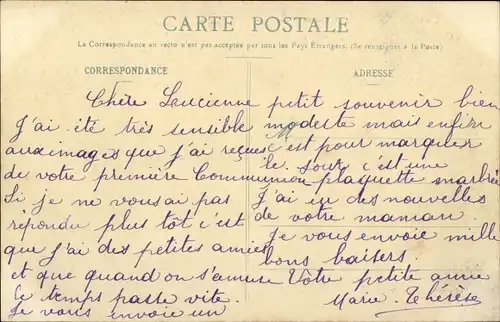 CARTE POSTALE
La Correspondance au recto n'est pas acceptée par tous les Pays Etrangers. (Se renseigner à la Poste)
CORRESPONDANCE
ADRESSE
Chère Lucienne
J'ai été très sensible
aux images que j'ai reçues
de votre première Communion
Si je ne vous ai pas
répondu plus tôt c'est
que j'ai des petites amies
et que quand on s'amuse
le temps passe vite.
Je vous envoie un
petit souvenir bien
modeste mais enfin
c'est pour marquer
le jour c'est une
plaquette marbrée
J'ai eu des nouvelles
de votre maman.
Je vous envoie mille
bons baisers.
Votre petite amie
Marie-Thérèse